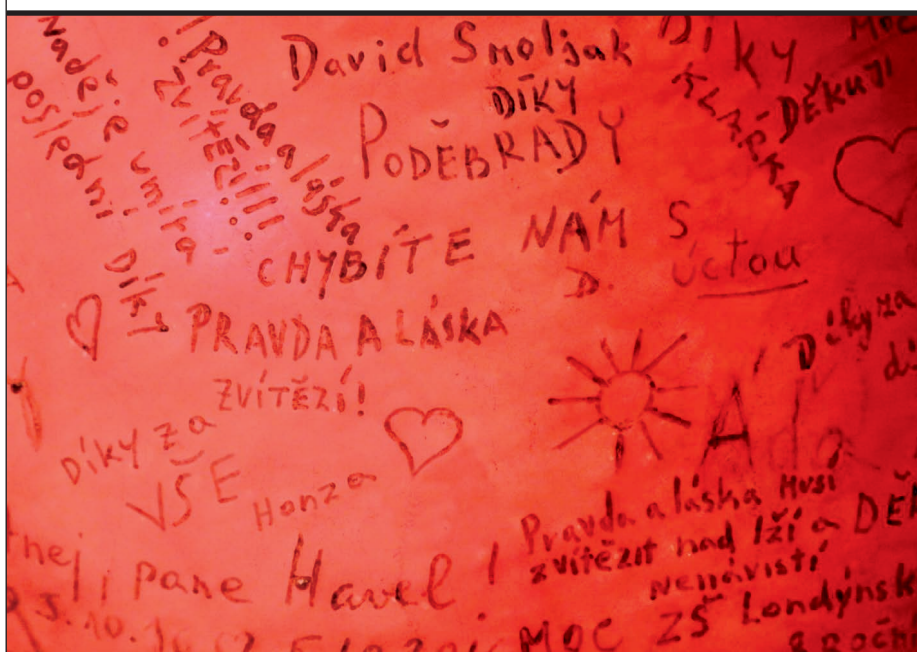 Naděje umírá
poslední
Díky
! Pravda a láska
zvítězí!!!
David Smoljak
DÍKY
PODĚBRADY
DÍKY
KLÁRKA
Moc
DĚKUJI
CHYBÍTE NÁM
D.
S
úctou
PRAVDA A LÁSKA
ZVÍTĚZÍ!
Díky za
DÍKY ZA
VŠE
Honza
Áďa
Pravda a láska musí
zvítězit nad lží a
nenávistí
pane Havel!
MOC
ZŠ Londýnsk